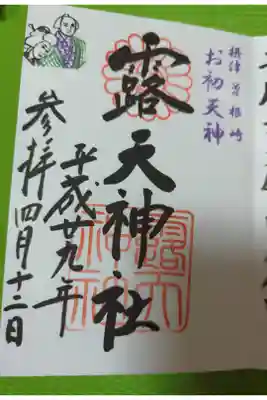 摂津 曽根崎
お初天神
露天神社
平成廿九年
四月十二日
参拝